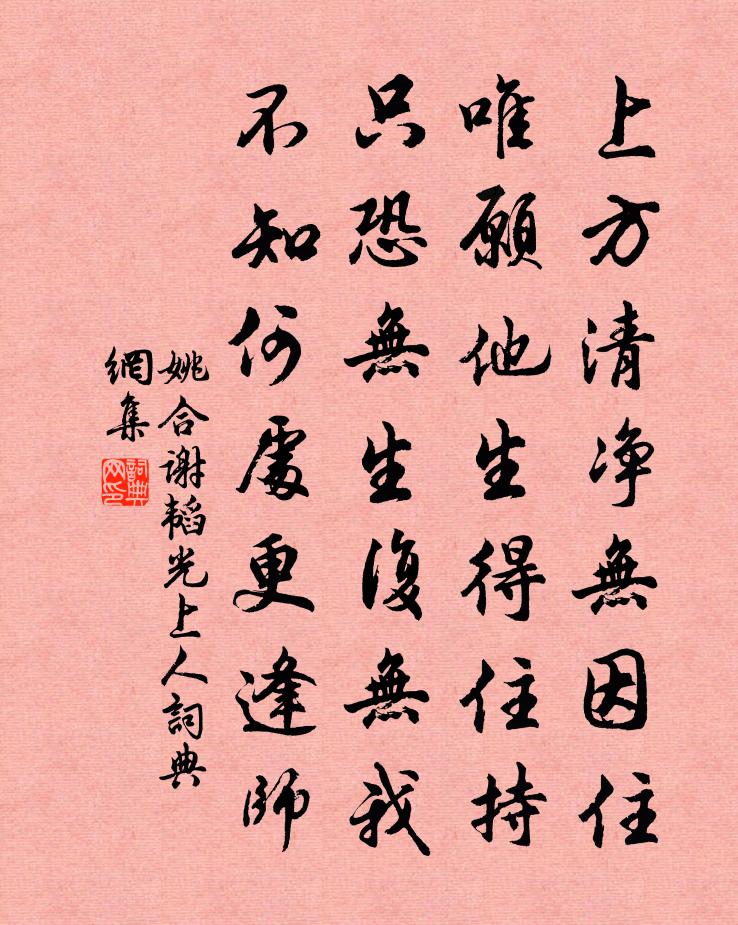 上方清净無因住
唯願他生得住持
只恐無生復無我
不知何處更逢師
姚合谢韬光上人詞典
網集
詞典
网印